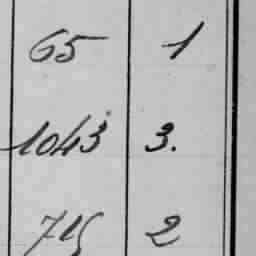 65 1
1043 3.
715 2